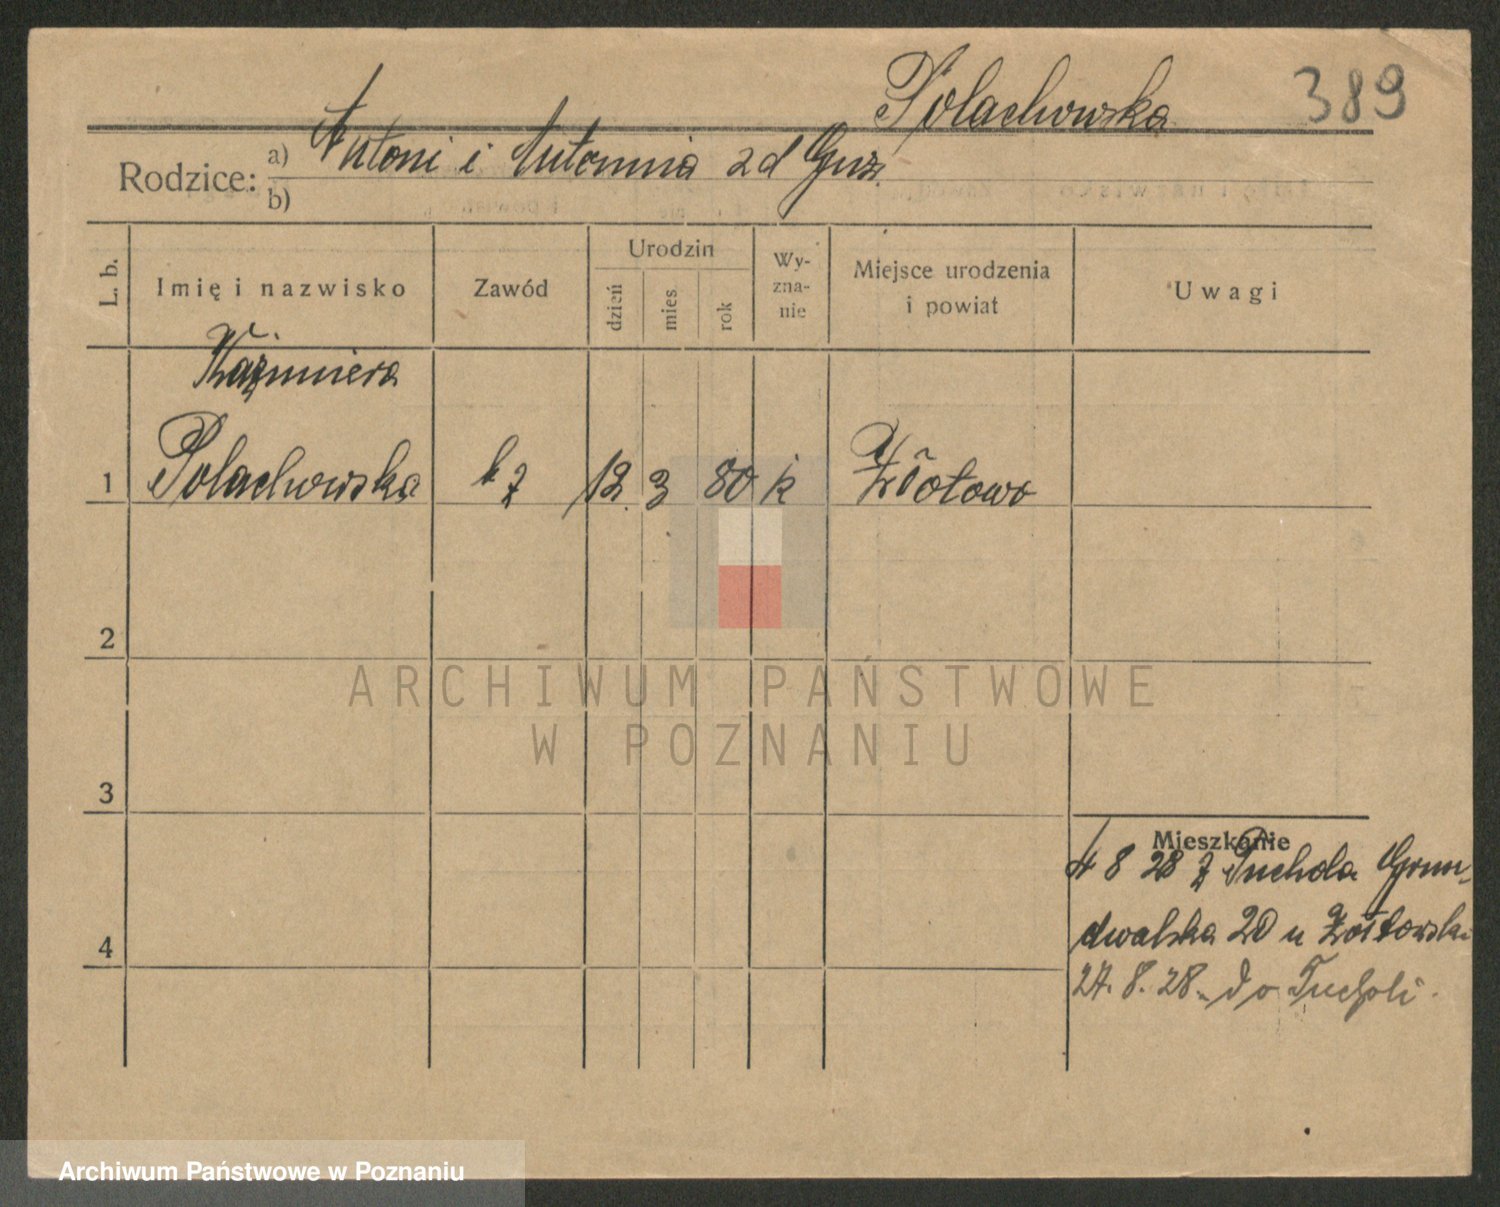 Polachowska 389
Rodzice: a) Antoni i Antonnia zd
b)
L. b.
Imię i nazwisko
Zawód
Urodzin
dzień
mies
rok
Wy-
zna-
nie
Miejsce urodzenia
i powiat
Uwagi
Kazimiera
1 Polachowska bz 12. 3 80 k Złotowo
2
ARCHIWUM PAŃSTWOWE
W POZNANIU
3
Mieszkanie
4 8 28 z Tuchola Grun-
dwalska 20 u
4
27. 8. 28. do Tucholi.
Archiwum Państwowe w Poznaniu